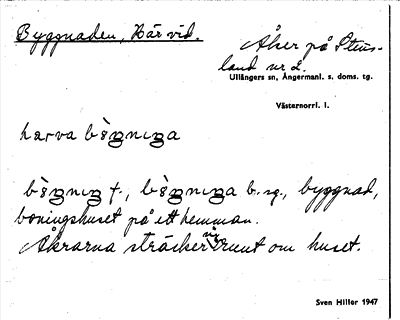 Byggnaden, Här vid.
Åker på Stens-
land nr 2.
Ullångers sn, Ångermanl. s. doms. tg.
Västernorrl. l.
harva
f., b. sg., byggnad,
boningshuset på ett hemman.
Åkrarna sträcker sig runt om huset.
Sven Hiller 1947